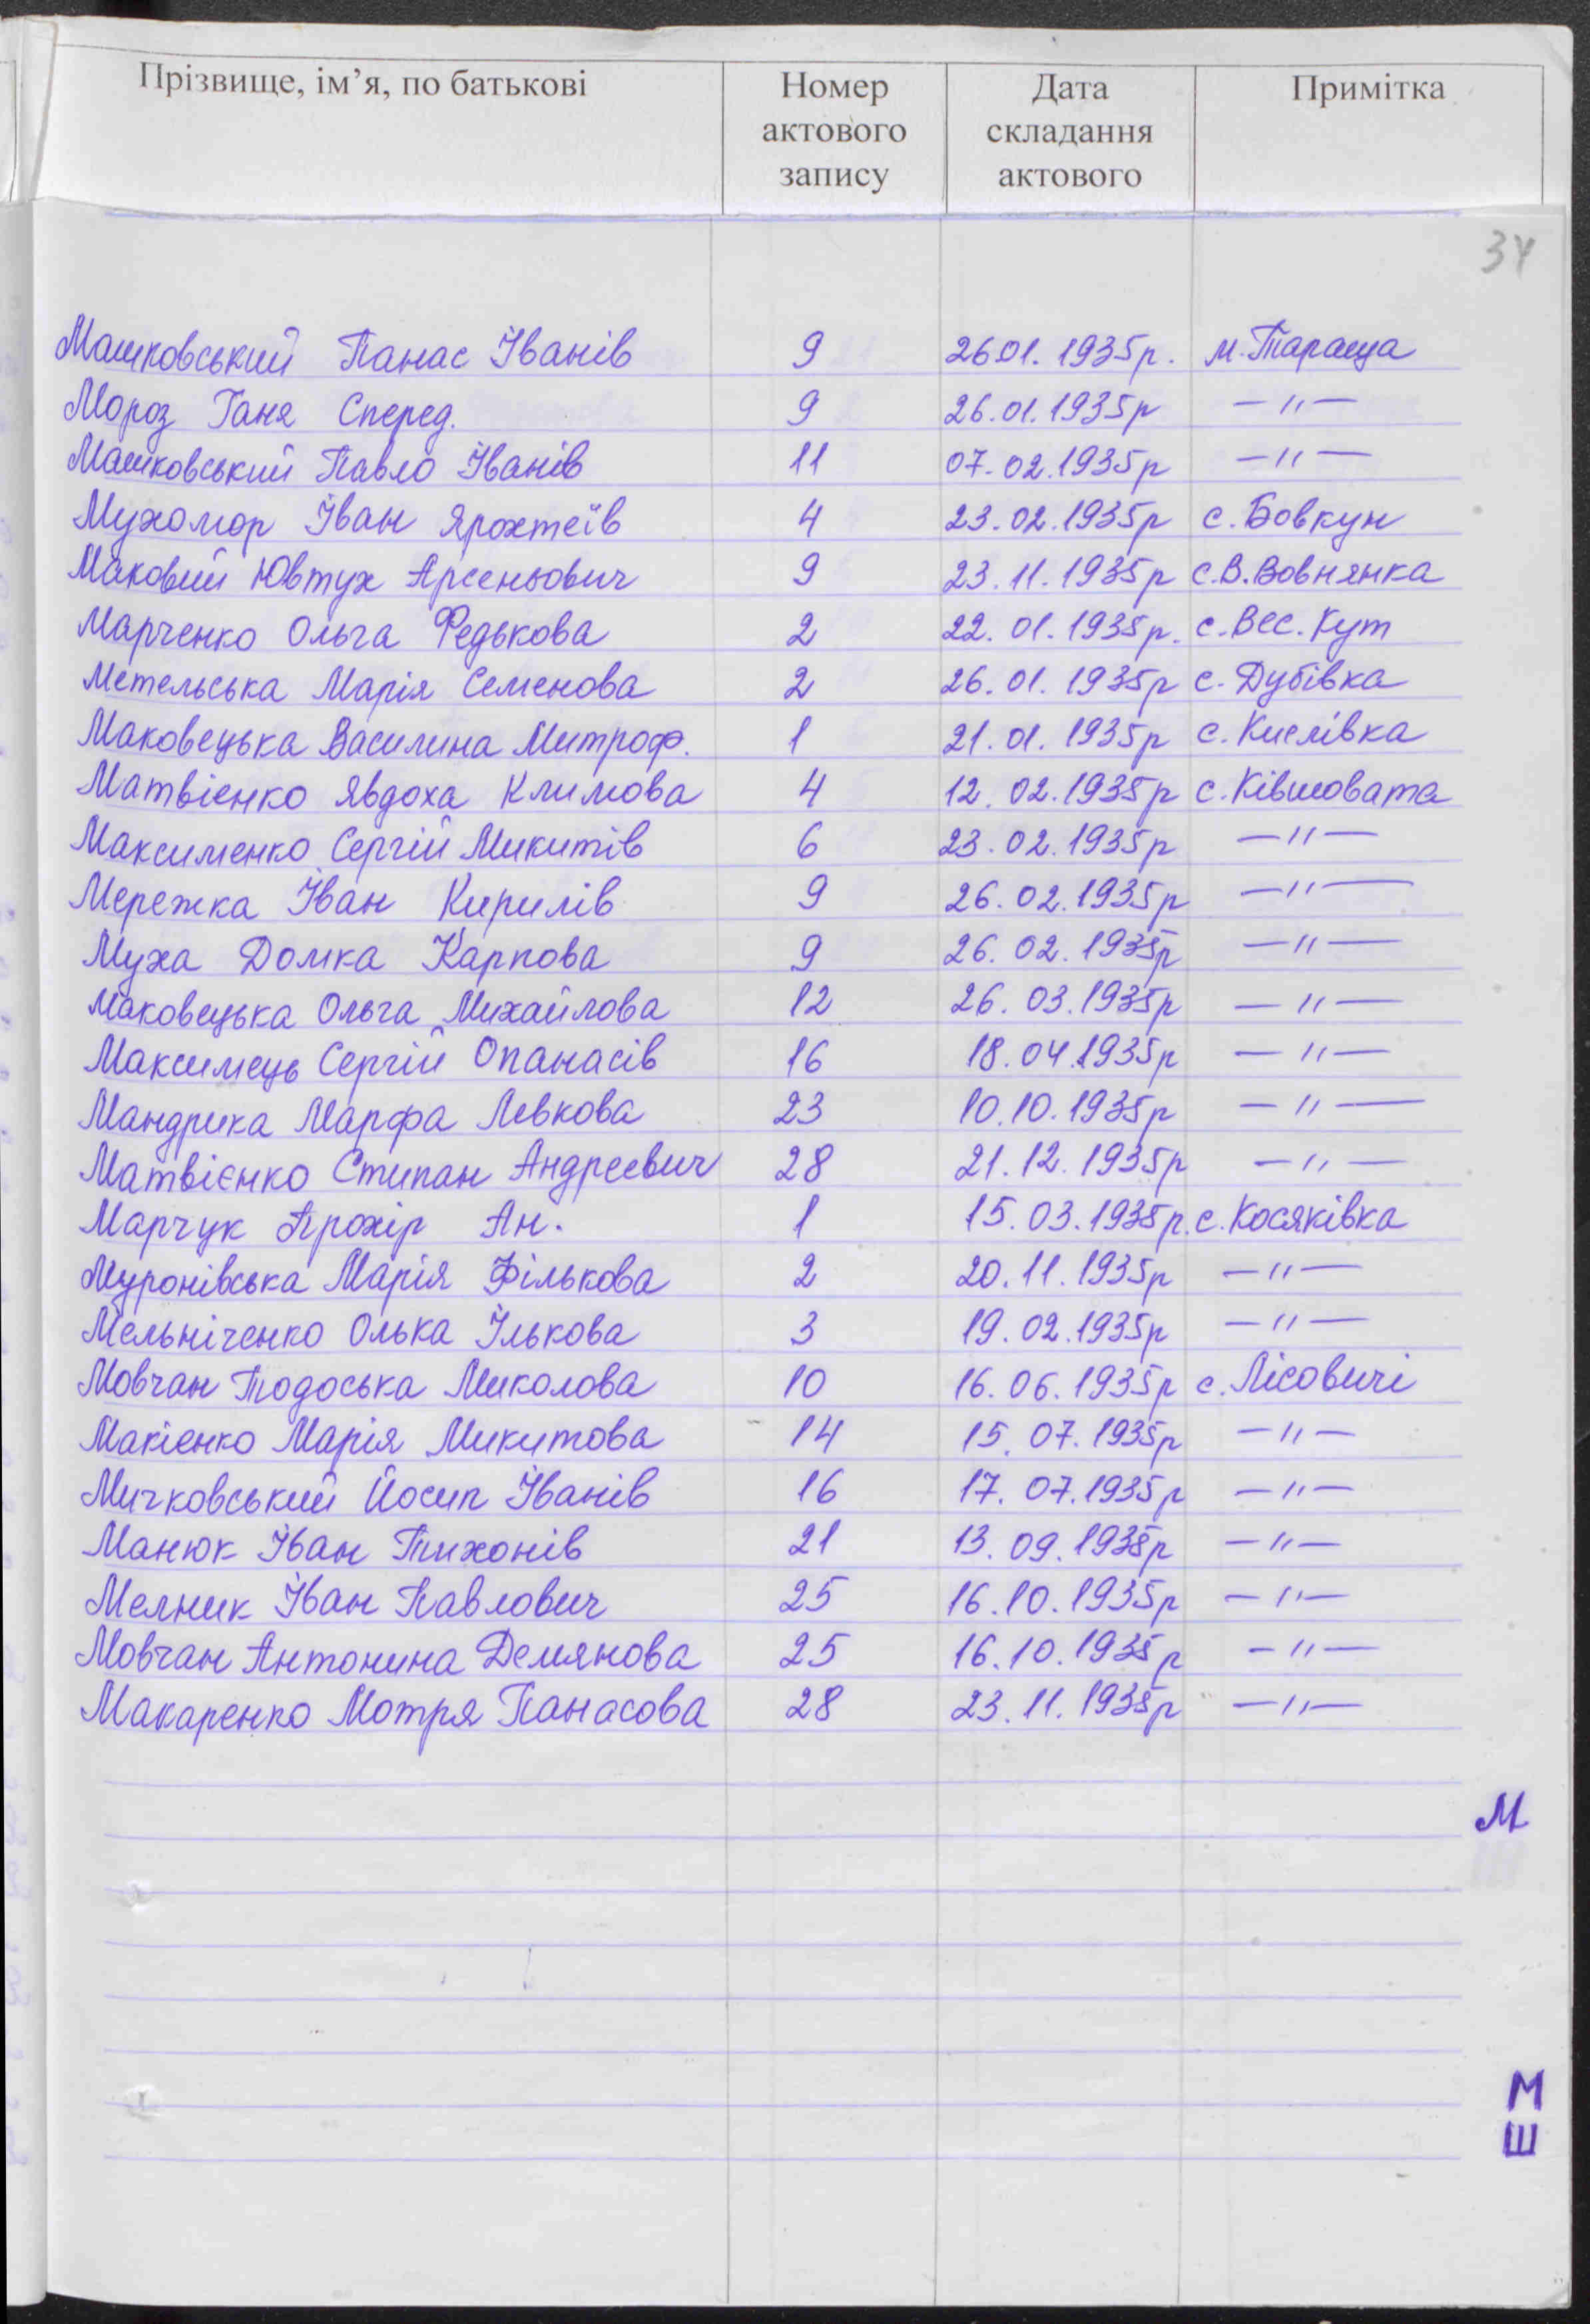 Прізвище, ім’я, по батькові Номер актового запису Дата складання актового Примітка
34
Машковський Панас Іванів 9 26.01.1935р. м. Тараща
Мороз Ганя Сперед. 9 26.01.1935р —"—
Машковський Павло Іванів 11 07.02.1935р —"—
Мухомор Іван Ярохтеїв 4 23.02.1935р с. Бовкун
Маковий Ювтух Арсеньович 9 23.11.1935р с.В.Вовнянка
Марченко Ольга Федькова 2 22.01.1935р. с. Вес. Кут
Метельська Марія Семенова 2 26.01.1935р с. Дубівка
Маковецька Василина Митроф. 1 21.01.1935р с. Кислівка
Матвієнко Явдоха Климова 4 12.02.1935р с. Ківшовата
Максименко Сергій Микитів 6 23.02.1935р —"—
Мережка Іван Кирилів 9 26.02.1935р —"—
Муха Домка Карпова 9 26.02.1935р —"—
Маковецька Ольга Михайлова 12 26.03.1935р —"—
Максимець Сергій Опанасів 16 18.04.1935р —"—
Мандрика Марфа Левкова 23 10.10.1935р —"—
Матвієнко Стипан Андреевич 28 21.12.1935р —"—
Марчук Прохір Ан. 1 15.03.1935р. с. Косяківка
Муронівська Марія Фількова 2 20.11.1935р —"—
Мельніченко Олька Ількова 3 19.02.1935р —"—
Мовчан Тодоська Миколова 10 16.06.1935р с. Лісовичі
Макієнко Марія Микитова 14 15.07.1935р —"—
Мичковський Йосип Іванів 16 17.07.1935р —"—
Манюк Іван Тихонів 21 13.09.1935р —"—
Мелник Іван Павлович 25 16.10.1935р —"—
Мовчан Антонина Демянова 25 16.10.1935р —"—
Макаренко Мотря Панасова 28 23.11.1935р —"—
М
М
Ш